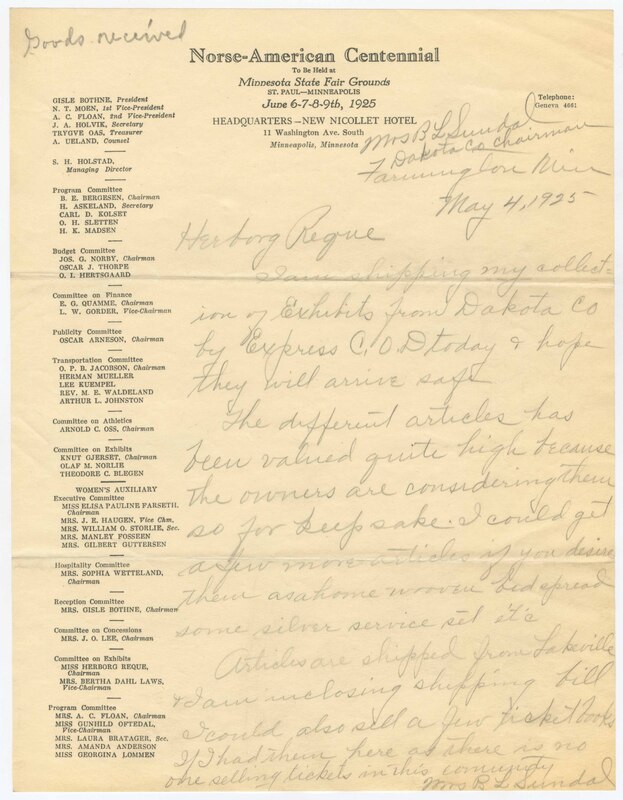 Goods received
Norse-American Centennial
To Be Held at
Minnesota State Fair Grounds
ST. PAUL—MINNEAPOLIS
June 6-7-8-9th, 1925
HEADQUARTERS – NEW NICOLLET HOTEL
11 Washington Ave. South
Minneapolis, Minnesota
Telephone:
Geneva 4661
GISLE BOTHNE, President
N. T. MOEN, 1st Vice-President
A. C. FLOAN, 2nd Vice-President
J. A. HOLVIK, Secretary
TRYGVE OAS, Treasurer
A. UELAND, Counsel
S. H. HOLSTAD,
Managing Director
Program Committee
B. E. BERGESEN, Chairman
H. ASKELAND, Secretary
CARL D. KOLSET
O. H. SLETTEN
H. K. MADSEN
Budget Committee
JOS. G. NORBY, Chairman
OSCAR J. THORPE
O. I. HERTSGAARD
Committee on Finance
E. G. QUAMME, Chairman
L. W. GORDER, Vice-Chairman
Publicity Committee
OSCAR ARNESON, Chairman
Transportation Committee
O. P. B. JACOBSON, Chairman
HERMAN MUELLER
LEE KUEMPEL
REV. M. E. WALDELAND
ARTHUR L. JOHNSTON
Committee on Athletics
ARNOLD C. OSS, Chairman
Committee on Exhibits
KNUT GJERSET, Chairman
OLAF M. NORLIE
THEODORE C. BLEGEN
WOMEN'S AUXILIARY
Executive Committee
MISS ELISA PAULINE FARSETH,
Chairman
MRS. J. E. HAUGEN, Vice Chm.
MRS. WILLIAM O. STORLIE, Sec.
MRS. MANLEY FOSSEEN
MRS. GILBERT GUTTERSEN
Hospitality Committee
MRS. SOPHIA WETTELAND,
Chairman
Reception Committee
MRS. GISLE BOTHNE, Chairman
Committee on Concessions
MRS. J. O. LEE, Chairman
Committee on Exhibits
MISS HERBORG REQUE,
Chairman
MRS. BERTHA DAHL LAWS,
Vice-Chairman
Program Committee
MRS. A. C. FLOAN, Chairman
MISS GUNHILD OFTEDAL,
Vice-Chairman
MRS. LAURA BRATAGER, Sec.
MRS. AMANDA ANDERSON
MISS GEORGINA LOMMEN
Mrs B L Sundal
Dakota Co Chairman
Farmington Min
May 4, 1925
Herborg Reque
I am shipping my collect-
ion of Exhibits from Dakota Co
by Express C.O.D today & hope
they will arrive safe
The different articles has
been valued quite high because
the owners are considering them
so for keepsake. I could get
a few more articles if you desire
them as a home wooven bedspread
some silver service set etc
Articles are shipped from Lakeville
& I am inclosing shipping bill
I could also sell a few ticket books
If I had them here as there is no
one selling tickets in this comunity
Mrs B L Sundal